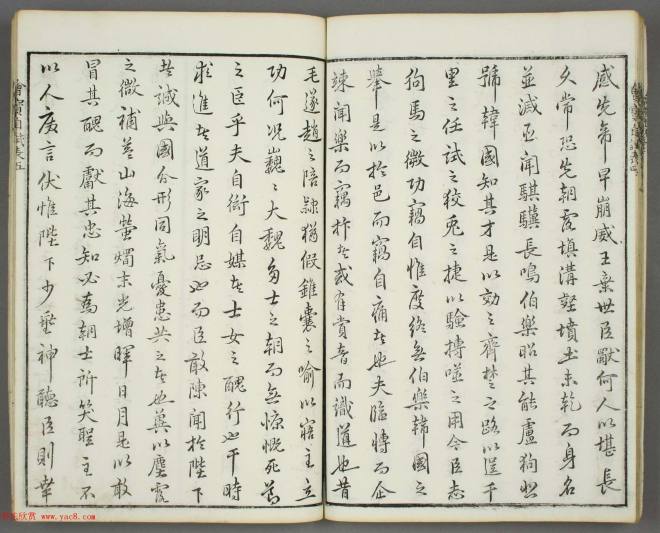 感先帝早崩威王棄世臣獨何人以堪長
久常恐先朝露填溝壑墳土未乾而身名
並滅臣聞騏驥長鳴伯樂昭其能盧狗悲
號韓國知其才是以效之齊楚之路以逞千
里之任試之狡兔之捷以驗搏噬之用今臣志
狗馬之微功竊自惟度終無伯樂韓國之
舉是以於邑而竊自痛者也夫臨博而企
竦聞樂而竊抃者或有賞音而識道也昔
毛遂趙之陪隸猶假錐囊之喻以寤主立
功何況巍巍大魏多士之朝而無慷慨死難
之臣乎夫自衒自媒者士女之醜行也干時
求進者道家之明忌也而臣敢陳聞於陛下
者誠與國分形同氣憂患共之者也冀以塵露
之微補益山海螢燭末光增暉日月是以敢
冒其醜而獻其忠知必為朝士所笑聖主不
以人廢言伏惟陛下少垂神聽臣則幸
www.yac8.com